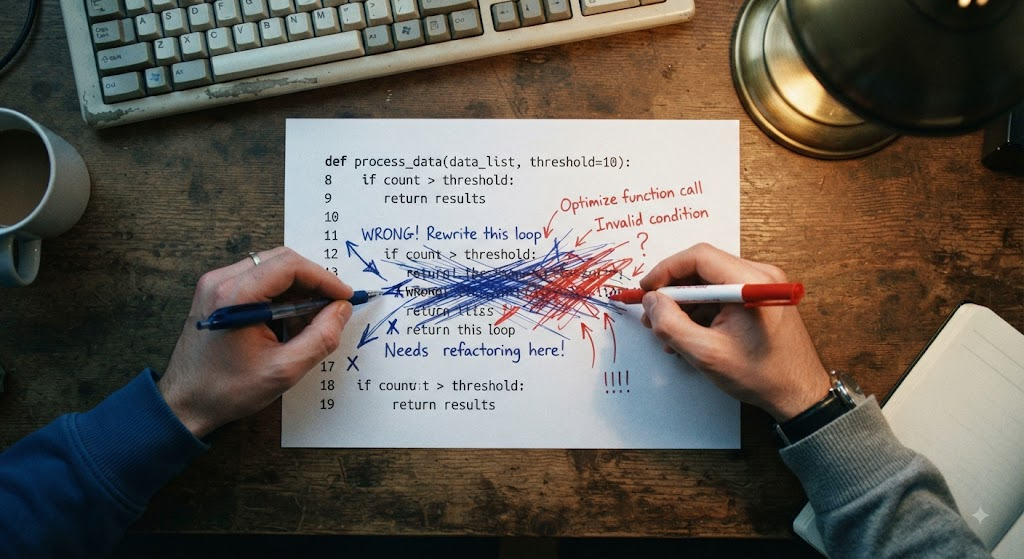 def process_data(data_list, threshold=10):
8 if count > threshold:
9 return results
Optimize function call
10
Invalid condition
11 WRONG! Rewrite this loop
?
12 if count > threshold:
return
WRONG!
return
X return this loop
Needs refactoring here!
17 X
!!!!
18 if counut > threshold:
19 return results